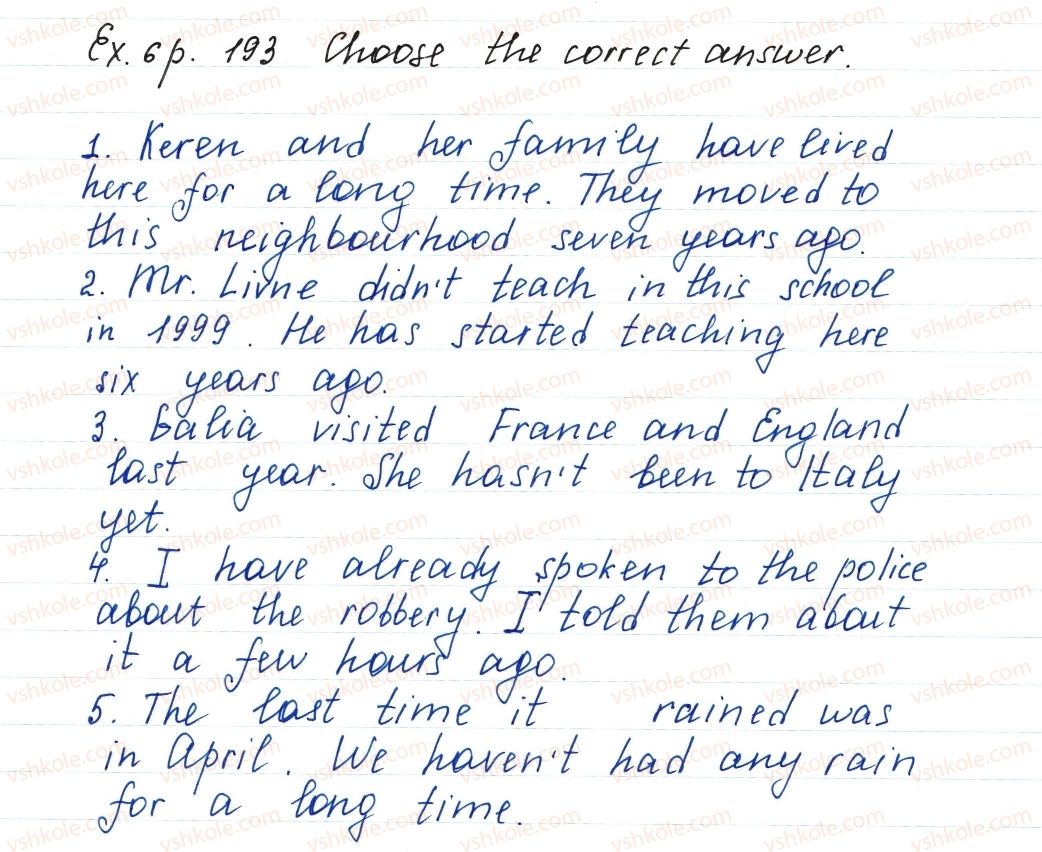 Ex. 6 p. 193 Choose the correct answer.
1. Keren and her family have lived
here for a long time. They moved to
this neighbourhood seven years ago.
2. Mr. Livne didn't teach in this school
in 1999. He has started teaching here
six years ago.
3. Galia visited France and England
last year. She hasn't been to Italy
yet.
4. I have already spoken to the police
about the robbery. I told them about
it a few hours ago.
5. The last time it rained was
in April. We haven't had any rain
for a long time.